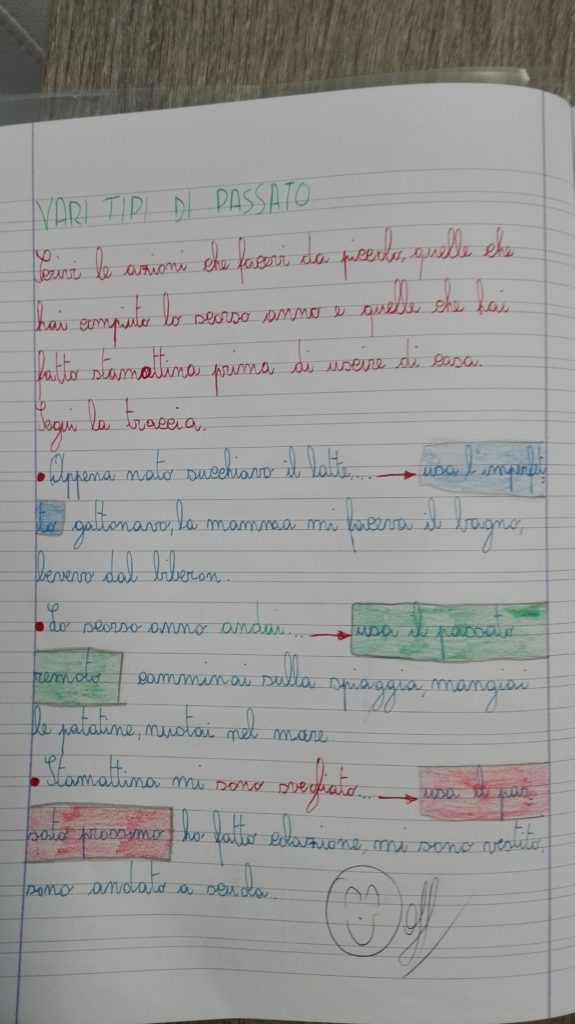 VARI TIPI DI PASSATO
Scrivi le azioni che facevi da piccolo, quelle che
hai compiuto lo scorso anno e quelle che hai
fatto stamattina prima di uscire di casa.
Segui la traccia.
• Appena nato succhiavo il latte... → usa l'imperfet
to gattonavo, la mamma mi faceva il bagno,
bevevo dal biberon.
• Lo scorso anno andai... → usa il passato
remoto camminai sulla spiaggia, mangiai
le patatine, nuotai nel mare.
• Stamattina mi sono svegliato... → usa il pas
sato prossimo ho fatto colazione, mi sono vestito,
sono andato a scuola.